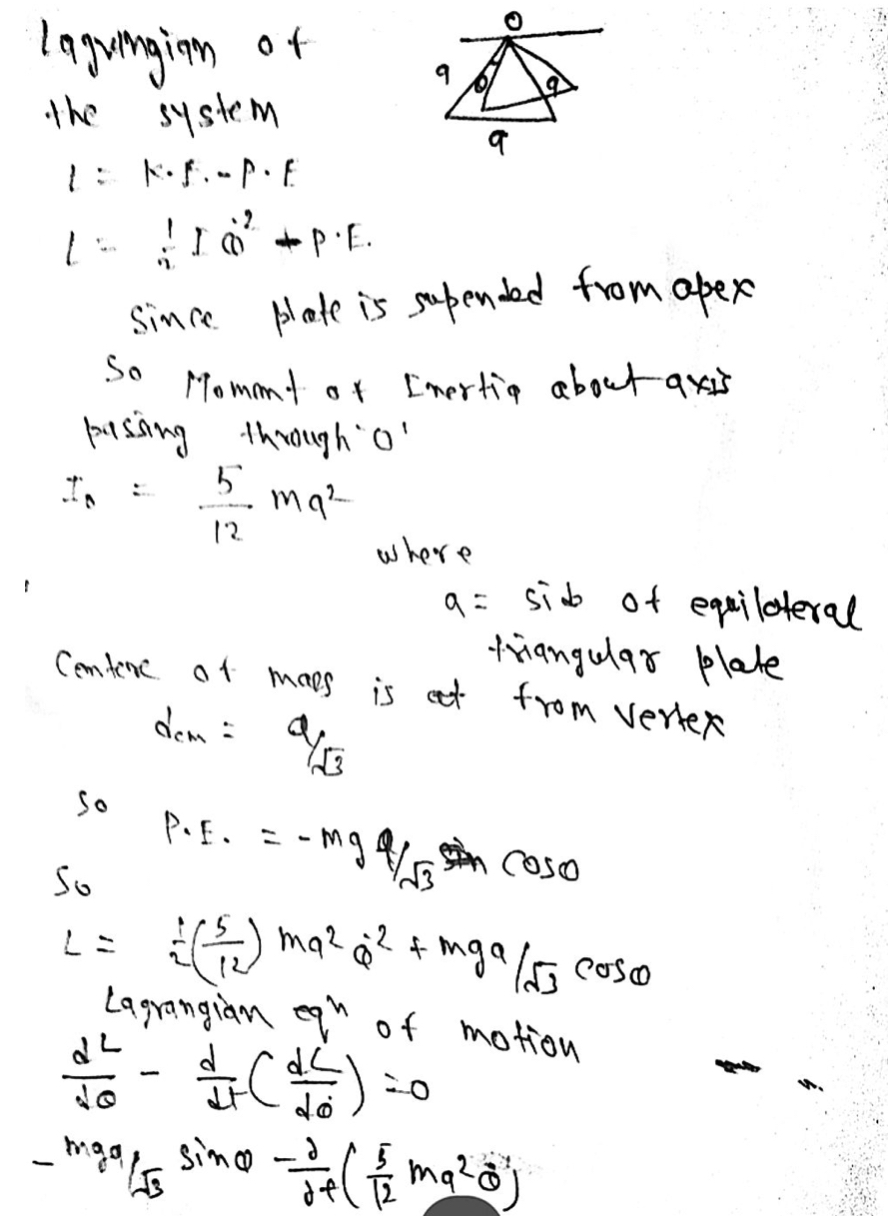 Lagrangian of
the system
O
a
θ
a
a
L = K.E. - P.E
L = 1/2 I θ̇² + P.E.
Since plate is supended from apex
So Momemt of Inertia about axis
passing through 'O'
I₀ = 5/12 ma²
where
a = side of equilateral
triangular plate
Centere of mass is at from vertex
dcm = a/√3
So
P.E. = - mg a/√3 cosθ
So
L = 1/2 (5/12) ma² θ̇² + mga/√3 cosθ
Lagrangian eqⁿ of motion
dL/dθ - d/dt (dL/dθ̇) = 0
- mga/√3 sinθ - d/dt (5/12 ma² θ̇)